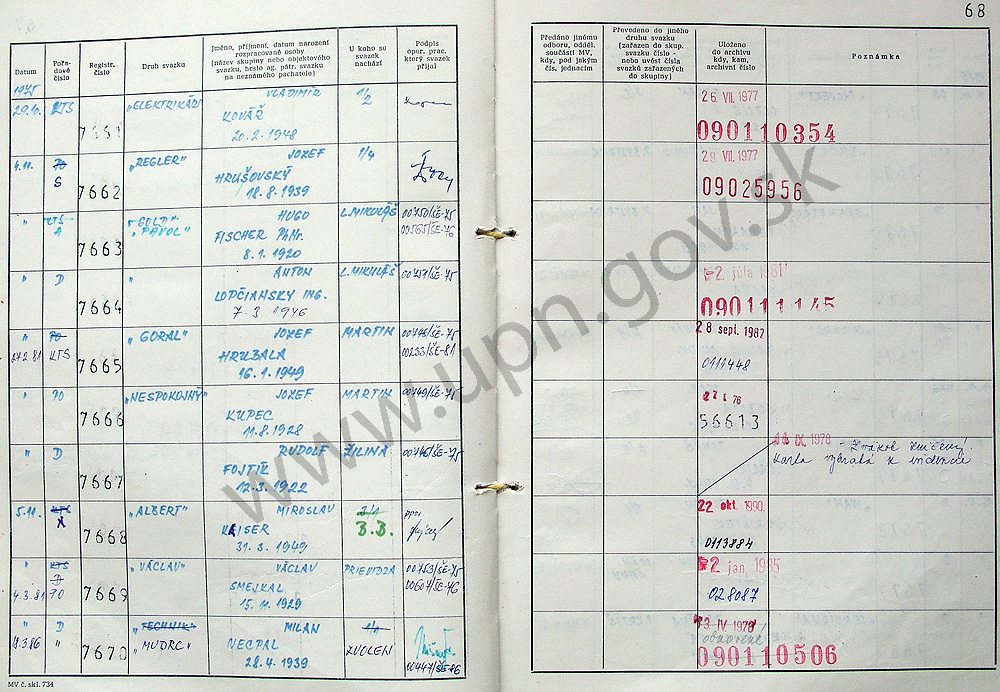 68
Datum
Pořa-
dové
číslo
Registr.
číslo
Druh svazku
Jméno, příjmení, datum narození
rozpracované osoby
(název skupiny nebo objektového
svazku, heslo ag. pátr. svazku
na neznámého pachatele)
U koho se
svazek
nachází
Podpis
oper. prac.
který svazek
přijal
Předáno jinému
odboru, odděl.
součásti MV,
kdy, pod jakým
čís. jednacím
Převedeno do jiného
druhu svazku
(zařazen do skup.
svazku číslo -
nebo uvést čísla
svazků zařazených
do skupiny)
Uloženo
do archivu
kdy, kam,
archivní číslo
Poznámka
1975
29.10. KTS "ELEKTRIKÁR" VLADIMIR 1/2
KOVÁŘ
20.2.1948
26. VII. 1977
090110354
4.11. S 7662 "REGLER" JOZEF 1/4
HRUŠOVSKÝ
18.8.1939
29. VII. 1977
09025956
" KTS A 7663 "GOLD" "PAVOL" HUGO L.MIKULÁŠ 00750/ŠE-75
FISCHER PhMr. 00565/ŠE-76
8.1.1920
" D 7664 " ANTON L.MIKULÁŠ 00751/ŠE-75
LOPČIANSKY ING.
7.3.1946
2. júla 1981
090111145
" 7665 "GORAL" JOZEF MARTIN 00748/ŠE-75
27.2.81 KTS HRUBALA 00233/ŠE-81
16.1.1949
28 sept. 1987
0111448
" PO 7666 "NESPOKOJNÝ" JOZEF MARTIN 00749/ŠE-75
KUPEC
11.8.1928
76
56613
" D 7667 " RUDOLF ŽILINA 00746/ŠE-75
FOJTÍK
12.3.1922
IX. 1978
Karta vybratá z evidencie
5.11. KTS 7668 "ALBERT" MIROSLAV
KAISER B.B. ppor.
31.3.1949
22 okt. 1990
0113884
" KTS D 7669 "VÁCLAV" VÁCLAV PRIEVIDZA 00753/ŠE-75
4.3.81 PO SMEJKAL 00607/ŠE-76
15.11.1929
2 jan. 1985
028087
" D 7670 "TECHNIK" MILAN
"MUDRC" NECPAL ZVOLEN
28.4.1939 00447/ŠE-86
3 IV. 1978
obnovené
090110506
MV č. skl. 734
www.upn.gov.sk